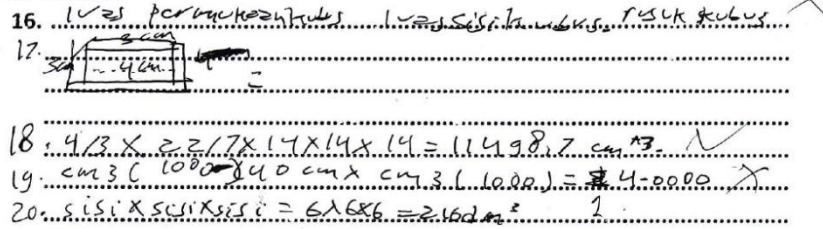 16. luas permukaan kubus luas sisi kubus. rusuk kubus
17. 3 cm
3cm 4 cm
=
18. 4/3 X 22/7X14X14X 14 = 11498,7 cm^3.
19. cm3 ( 1000 )40 cm x cm3 ( 1000) = 4-0000
20. sisi X sisi X sisi = 6X6X6 = 216dm³